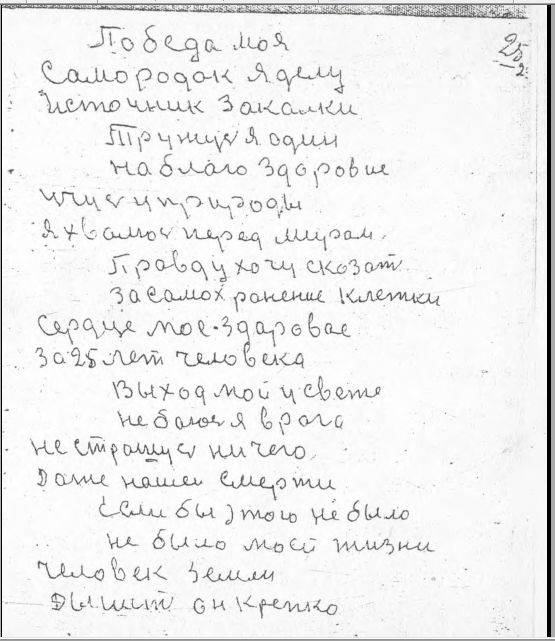 25
2
Победа моя
Самородок я делу
Источник Закалки
Тружуся я один
на благо Здоровие
учуся у природы
я хвалюся перед миром.
Правду хочу сказат
За самохранение Клетки
Сердце мое-Здаровае
За 25 лет человека
Выход мой у свете
не баюся я врага
не страшуся ничего.
Даже нашеи смерти
Если бы этого не было
не было моей жизни
Человек Земли
Дышит он Крепко